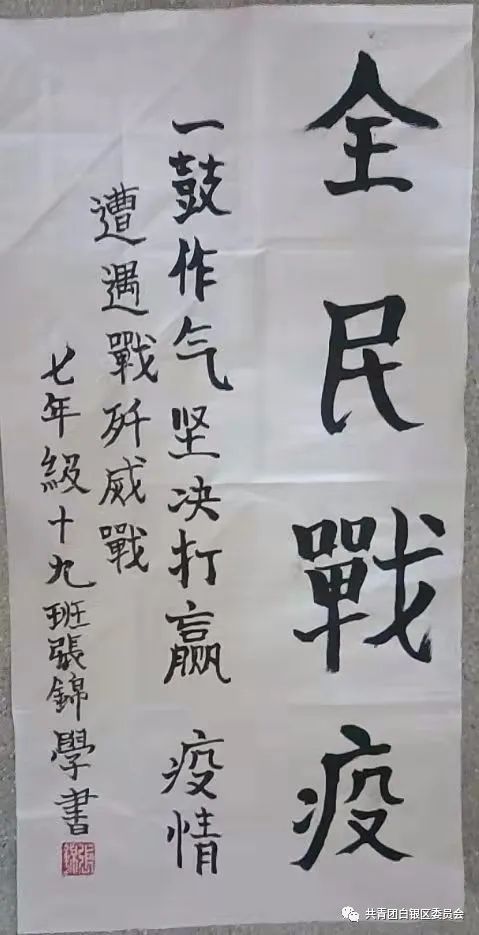 全民戰疫
一鼓作气坚决打赢疫情
遭遇戰歼威戰
七年級十九班張錦學書
共青团白银区委员会